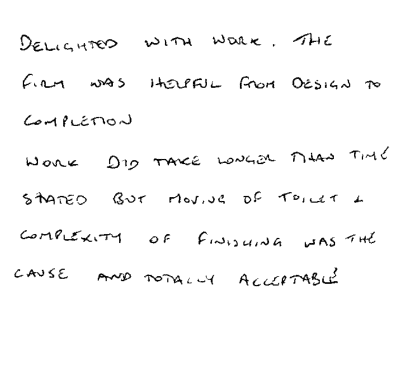 DELIGHTED WITH WORK. THE
FIRM WAS HELPFUL FROM DESIGN TO
COMPLETION
WORK DID TAKE LONGER THAN TIME
STATED BUT MOVING OF TOILET &
COMPLEXITY OF FINISHING WAS THE
CAUSE AND TOTALLY ACCEPTABLE